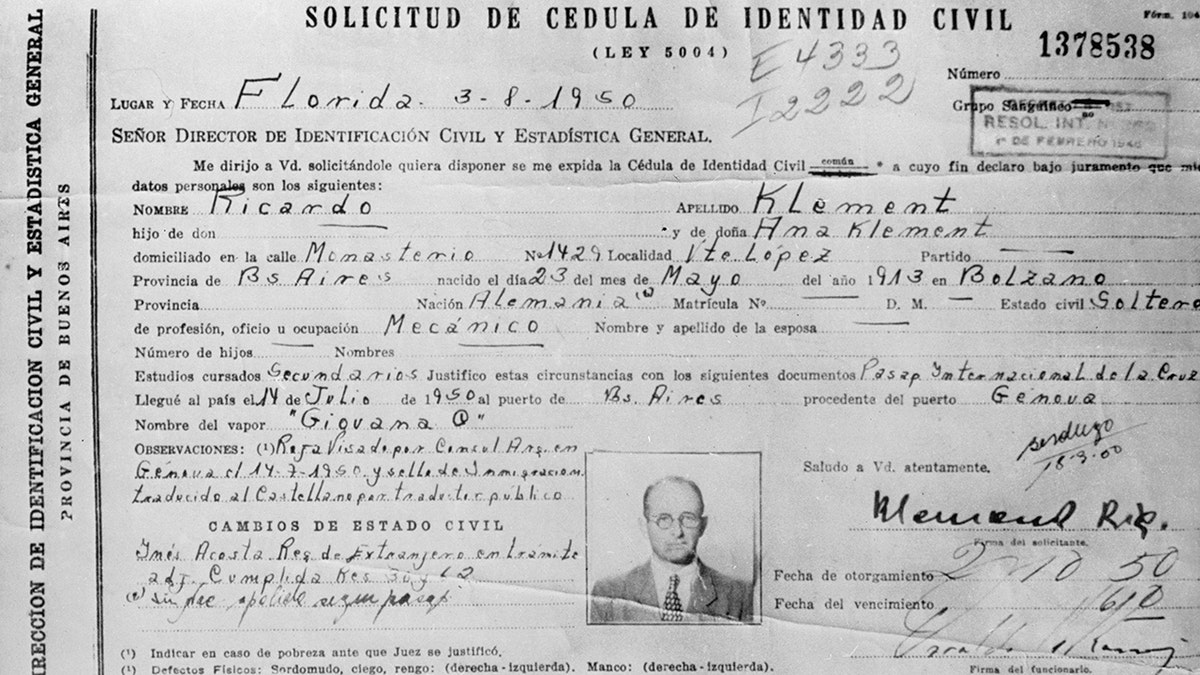 SOLICITUD DE CEDULA DE IDENTIDAD CIVIL
Fórm. 104
(LEY 5004)
E 4333
I 2222
1378538
Número
Grupo Sanguíneo
RESOL. INT. Nº
1º DE FEBRERO 1948
LUGAR Y FECHA Florida. 3-8-1950
SEÑOR DIRECTOR DE IDENTIFICACIÓN CIVIL Y ESTADÍSTICA GENERAL.
Me dirijo a Vd. solicitándole quiera disponer se me expida la Cédula de Identidad Civil común * a cuyo fin declaro bajo juramento que mis
datos personales son los siguientes:
NOMBRE Ricardo APELLIDO Klement
hijo de don y de doña Ana Klement
domiciliado en la calle Monasterio Nº 1429 Localidad Vte López Partido
Provincia de Bs Aires nacido el día 23 del mes de Mayo del año 1913 en Bolzano
Provincia Nación Alemania Matrícula Nº D. M. Estado civil Soltero
de profesión, oficio u ocupación Mecánico Nombre y apellido de la esposa
Número de hijos Nombres
Estudios cursados Secundarios Justifico estas circunstancias con los siguientes documentos Pasap Internacional de la Cruz
Llegué al país el 14 de Julio de 1950 al puerto de Bs. Aires procedente del puerto Genova
Nombre del vapor "Giovana C"
OBSERVACIONES: (1) Roja Visado por Consul Arg. en
Génova el 14-7-1950 y sello de Inmigracion
traducido al Castellano por traductor público
Saludo a Vd. atentamente.
CAMBIOS DE ESTADO CIVIL
Inés Acosta Reg de Extranjero en trámite
Cumplida Res
según pasap
Firma del solicitante.
Fecha de otorgamiento 2 10 50
Fecha del vencimiento
Firma del funcionario.
(1) Indicar en caso de pobreza ante que Juez se justificó.
(1) Defectos Físicos: Sordomudo, ciego, rengo: (derecha-izquierda). Manco: (derecha-izquierda).
DIRECCION DE IDENTIFICACION CIVIL Y ESTADISTICA GENERAL
PROVINCIA DE BUENOS AIRES